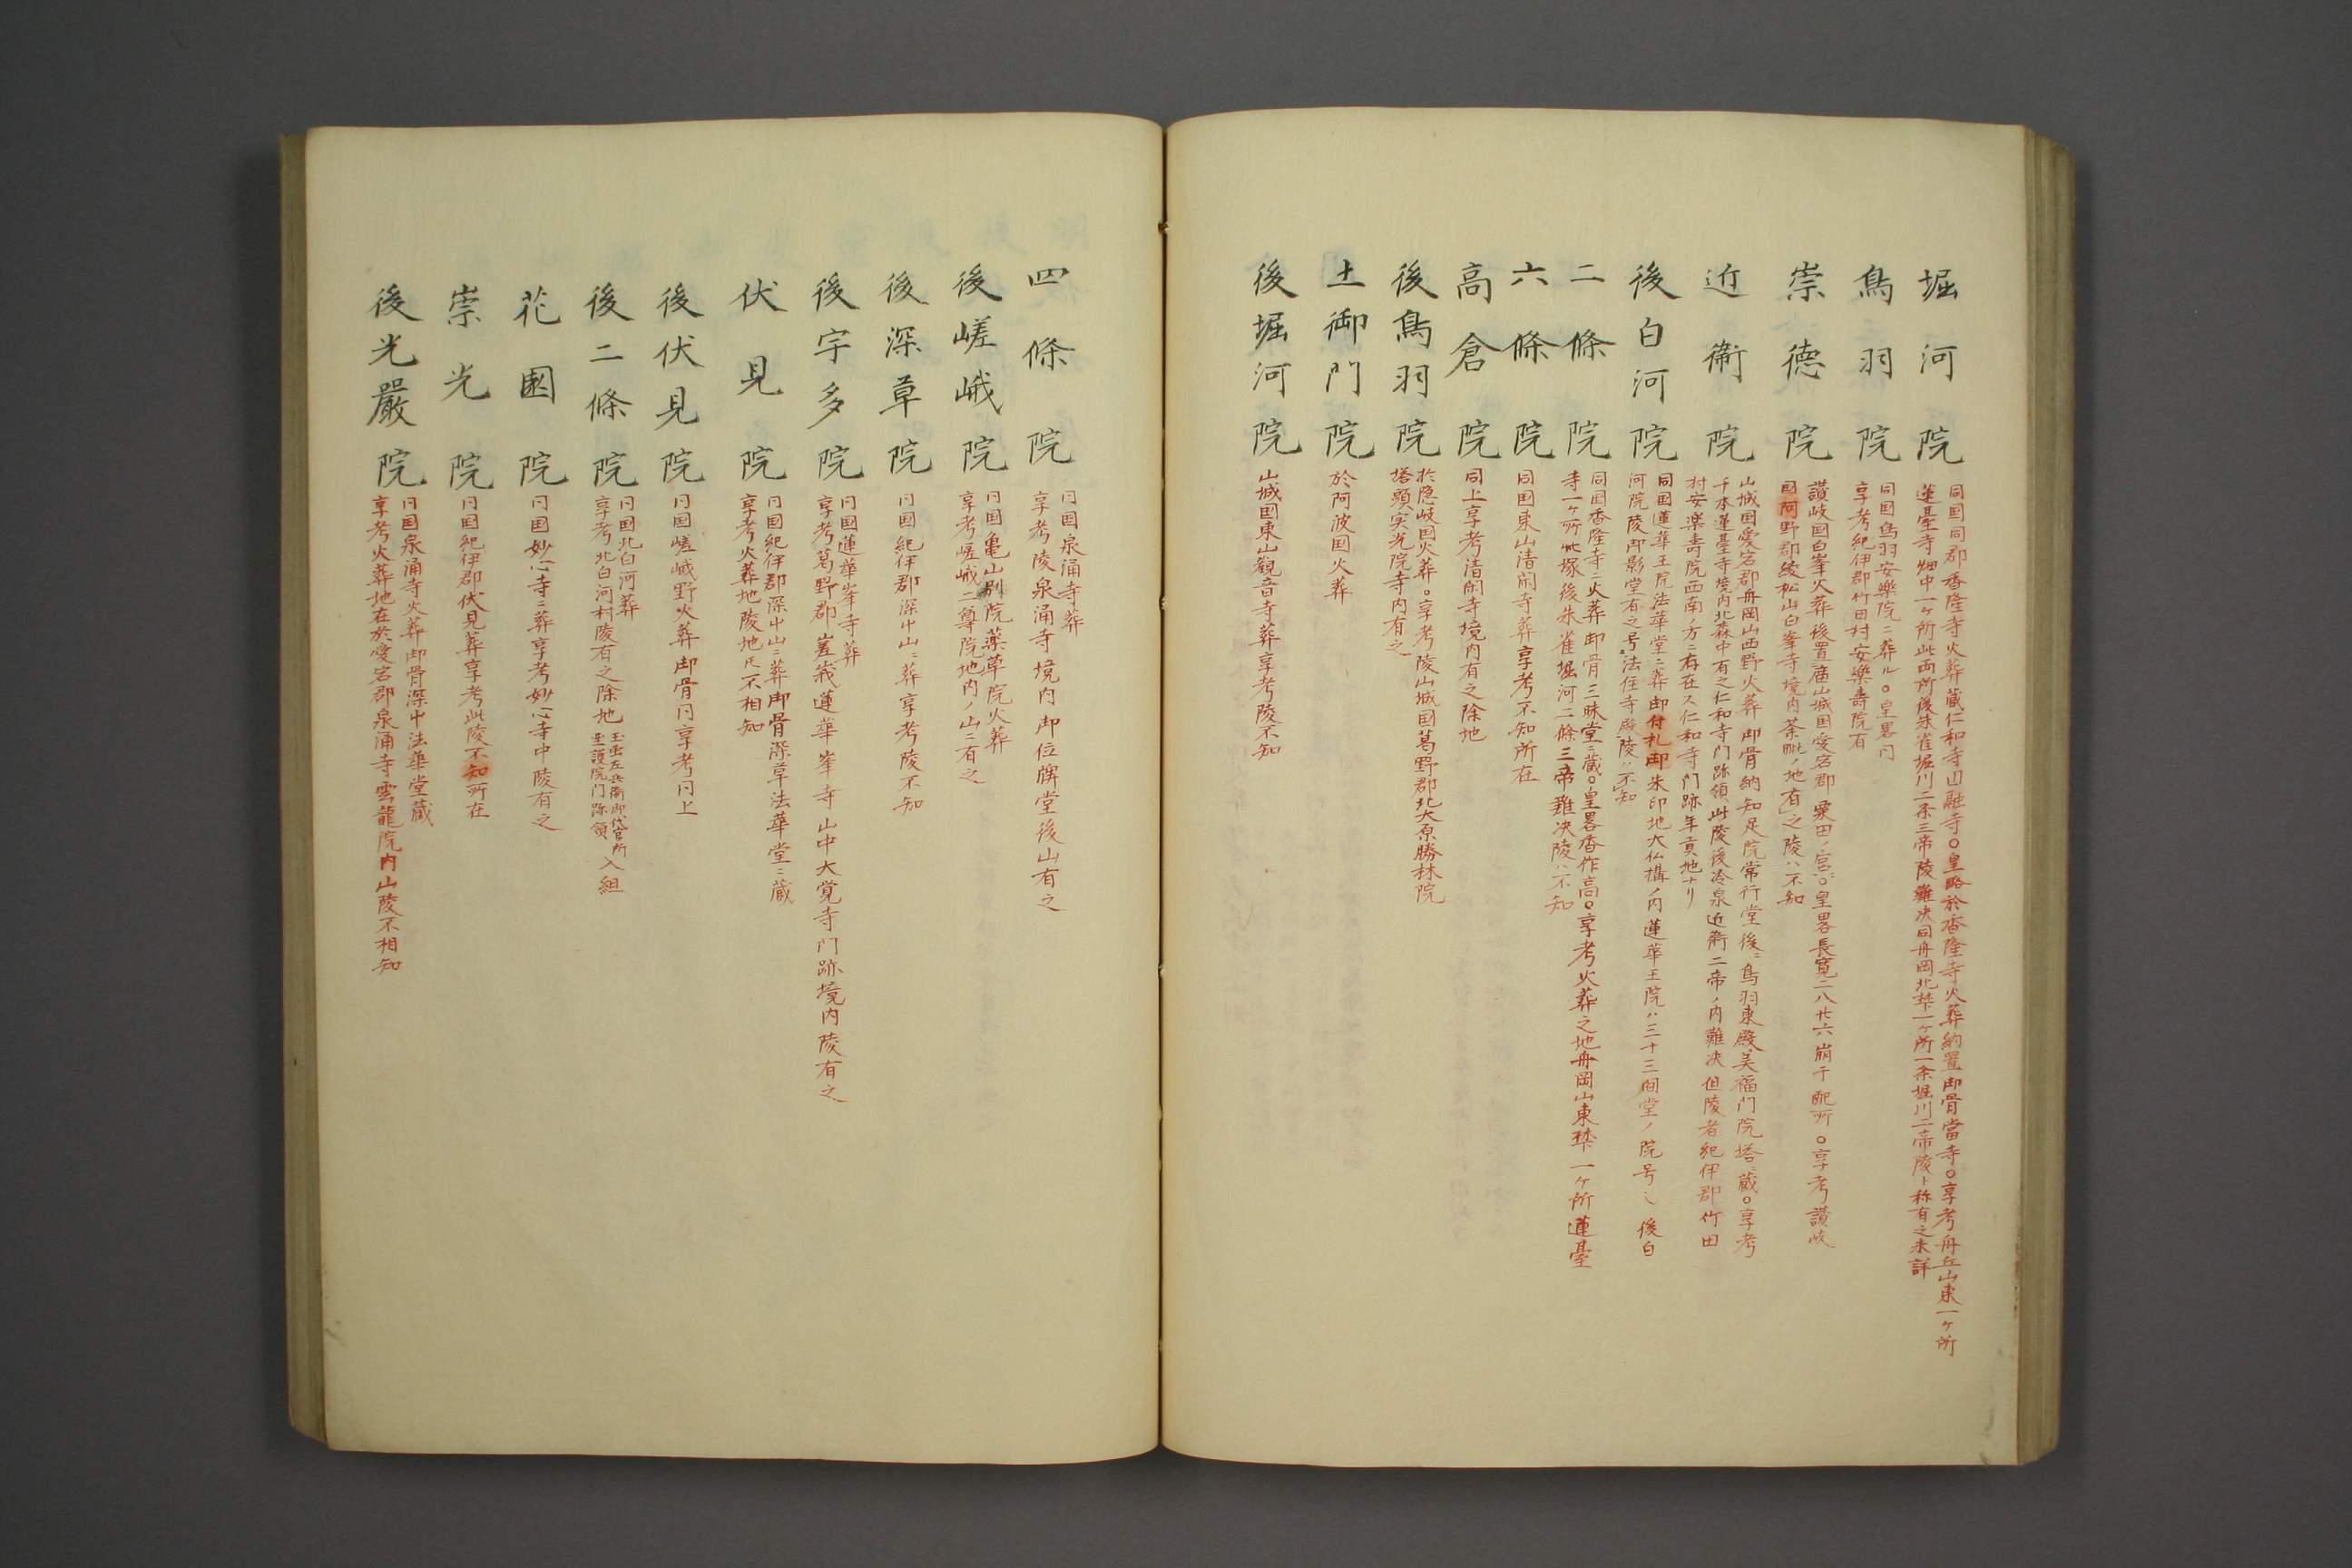 堀河院
同国同郡香隆寺火葬蔵仁和寺山融寺○皇略於香隆寺火葬納置御骨當寺○享考舟丘山東一ケ所
蓮臺寺畑中一ケ所此両所後朱雀堀川二条三帝陵難决同舟岡北埜一ケ所一条堀川二帝陵ト称有之未詳
鳥羽院
同国鳥羽安樂院ニ葬ル○皇畧同
享考紀伊郡竹田村安樂壽院有
崇德院
讃岐国白峯火葬後置庿山城国愛宕郡粟田ノ宮○皇畧長寛二八廿六崩于配所○享考讃岐
国阿野郡綾松山白峯寺境内荼毗ノ地有之陵ハ不知
近衛院
山城国愛宕郡舟岡山西野火葬御骨納知足院常行堂後ニ鳥羽東殿美福門院塔ニ蔵○享考
千本蓮臺寺境内北森中有之仁和寺門跡領此陵後冷泉近衛二帝ノ内難决但陵者紀伊郡竹田
村安楽壽院西南ノ方ニ存在ス仁和寺門跡年貢地ナリ
後白河院
同国蓮華王院法華堂ニ葬御付札御朱印地大仏構ノ内蓮華王院ハ三十三間堂ノ院号也後白
河院陵御影堂有之号法住寺殿陵ハ不知
二條院
同国香隆寺ニ火葬御骨三昧堂ニ蔵○皇畧香作高○享考火葬之地舟岡山東埜一ケ所蓮臺
寺一ケ所此塚後朱雀堀河二條三帝難决陵ハ不知
六條院
同国東山清閑寺葬享考不知所在
高倉院
同上享考清閑寺境内有之除地
後鳥羽院
於隠岐国火葬○享考陵山城国葛野郡北大原勝林院
塔頭実光院寺内有之
土御門院
於阿波国火葬
後堀河院
山城国東山觀音寺葬享考陵不知
四條院
同国泉涌寺葬
享考陵泉涌寺境内御位牌堂後山有之
後嵯峨院
同国亀山別院薬草院火葬
享考嵯峨二尊院地内ノ山ニ有之
後深草院
同国紀伊郡深中山ニ葬享考陵不知
後宇多院
同国蓮華峯寺葬
享考葛野郡嵳峩蓮華峯寺山中大覚寺門跡境内陵有之
伏見院
同国紀伊郡深中山ニ葬御骨深草法華堂ニ蔵
享考火葬地陵地𪜈不相知
後伏見院
同国嵯峨野火葬御骨同享考同上
後二條院
同国北白河葬
享考北白河村陵有之除地玉虫左兵衛御代官所
聖護院門跡領入組
花園院
同国妙心寺ニ葬享考妙心寺中陵有之
崇光院
同国紀伊郡伏見葬享考此陵不知所在
後光嚴院
同国泉涌寺火葬御骨深中法華堂蔵
享考火葬地在於愛宕郡泉涌寺雲龍院内山陵不相知